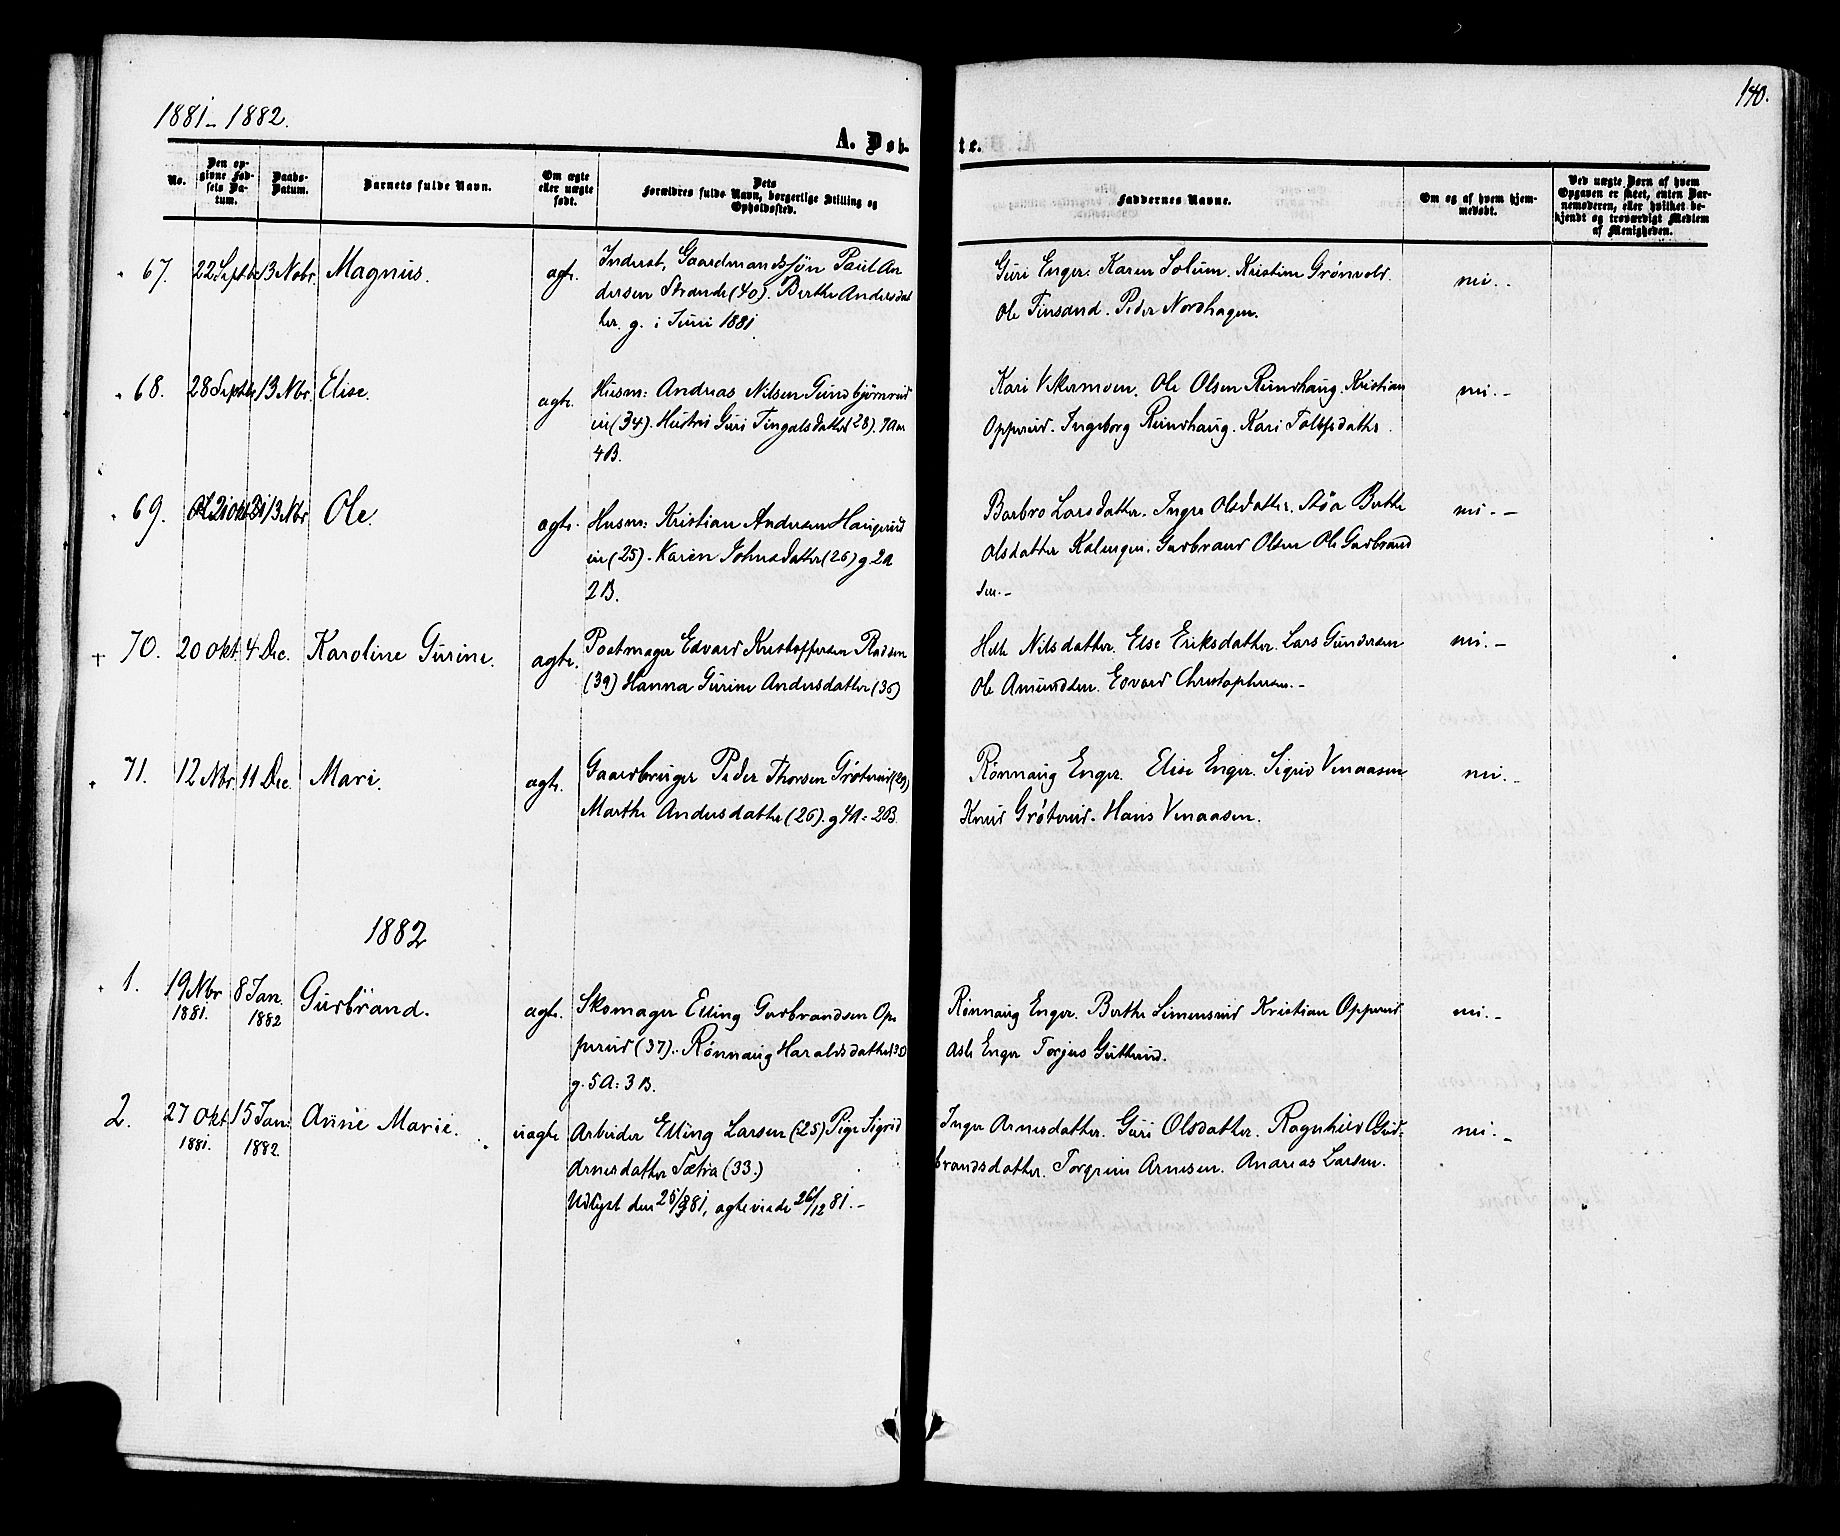 1881-1882.
140.
A. Døb-
te.
No.
Den op-
givne Fød-
sels Da-
tum.
Daabs-
Datum.
Barnets fulde Navn.
Om ægte
eller uægte
født.
Dets
Forældres fulde Navn, borgerlige Stilling og
Opholdssted.
Faddernes Navne.
Om og af hvem hjem-
medøbt.
Ved uægte Børn af hvem
Opgaven er skeet, enten Bar-
nemoderen, eller hvilket be-
kjendt og troværdigt Medlem
af Menigheden.
67. 22 Septbr 13 Novbr. Magnus. ægte.
Inderst, Gaardmandssøn Paul An
dersen Strande (40). Berthe Andersdat
ter. g. i Juni 1881.
Guri Enger. Karen Solum. Kristine Grønvold.
Ole Finsand. Peder Nordhagen.
nei.-
68. 28 Septbr 13 Nbr. Elise. ægte.
Husm: Andreas Nilsen Gundbjørnrud
ei (34). Hustru Guri Tingalsdatter (28). 7 Aar
4 B.
Kari Vikermoen. Ole Olsen Rundhaug. Kristian
Opperud. Ingeborg Rundhaug. Kari Tolfsdatter.
nei.-
69. 21 Okt 13 Nbr Ole. ægte.
Husm: Kristian Andersen Haugerud
ei (25). Karen Johnsdatter (26) g. 2 A
2 B.
Barbro Larsdatter. Inger Olsdatter. Berthe
Olsdatter. Gudbrand Olsen Ole Gudbrand
sen.-
nei.-
70. 20 Okt 4 Dec. Karoline Gurine. ægte.
Postmager Edvard Kristoffersen
(39) Hanna Gurine Andersdatter (36)
Helle Nilsdatter. Else Eriksdatter. Lars Gundersen
Ole Amundsen. Edvard Christophersen.-
nei.-
71. 12 Nbr. 11 Dec. Mari. ægte.
Gaardbruger Peder Thorsen Grøterud (29)
Marthe Andersdatter (26). g 4 A: 2 B.
Rønnaug Enger. Elise Enger. Sigrid Venaasen
Knud Grøterud. Hans Venaasen.
nei.-
1882
1. 19 Nbr 8 Jan. Gudbrand. ægte.
1881. 1882
Skomager Elling Gudbrandsen Op
perud (37). Rønnaug Haraldsdatter (30
g. 5 A: 3 B.
Rønnaug Enger. Berthe Simensrud Kristian Opperud
Asle Enger Torjus Gutterud.
nei.-
2. 27 Okt 15 Jan: Anne Marie. uægte
1881. 1882
Arbeider Elling Larsen (25) Pige Sigrid
Arnesdatter Sætra (33.)
Udlyst den 25/9 81, ægteviede 26/12 81.-
Inger Arnesdatter. Guri Olsdatter. Ragnhild Gud-
brandsdatter. Torgrim Arnesen. Andreas Larsen.
nei.-